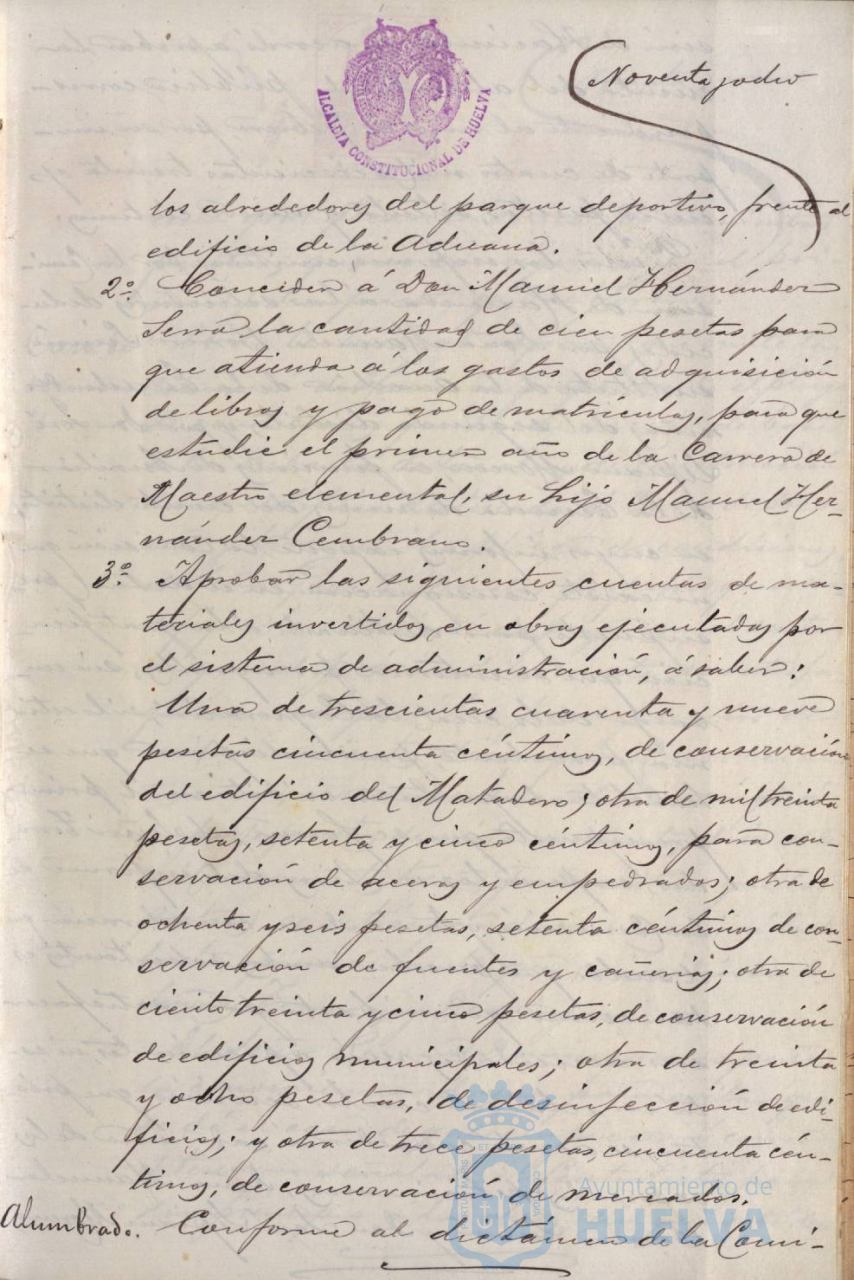 ALCALDIA CONSTITUCIONAL DE HUELVA
Noventa y ocho
los alrededores del parque deportivo, frente al
edificio de la Aduana.
2º. Conceder á Don Manuel Hernández
Serra la cantidad de cien pesetas para
que atienda á los gastos de adquisición
de libros y pago de matrículas, para que
estudie el primer año de la Carrera de
Maestro elemental, su hijo Manuel Her-
nández Cembrano.
3º. Aprobar las siguientes cuentas de ma-
teriales invertidos en obras ejecutadas por
el sistema de administración, á saber:
Una de trescientas cuarenta y nueve
pesetas cincuenta céntimos, de conservación
del edificio del Matadero; otra de mil treinta
pesetas, setenta y cinco céntimos, para con-
servación de aceras y empedrados; otra de
ochenta y seis pesetas, setenta céntimos de con-
servación de fuentes y cañerías; otra de
ciento treinta y cinco pesetas, de conservación
de edificios municipales; otra de treinta
y ocho pesetas, de desinfección de edi-
ficios; y otra de trece pesetas, cincuenta cén-
timos, de conservación de mercados.
Alumbrado. Conforme al dictámen de la Comi-
Ayuntamiento de
HUELVA